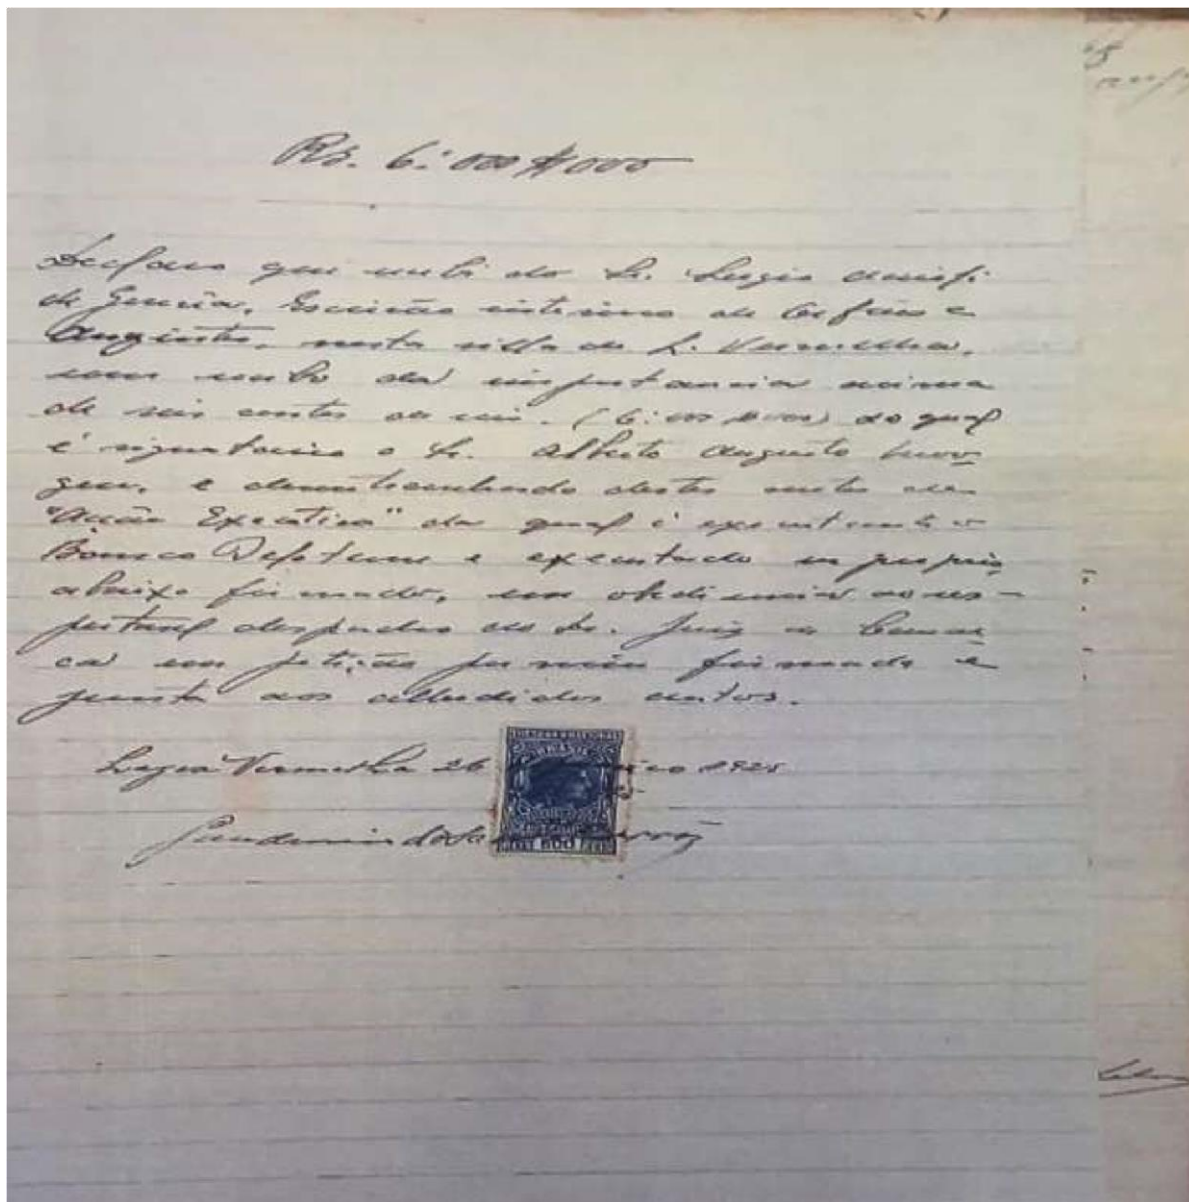 Rs. 6:000$000
Declaro que recebi do Sr.
de Escrivão interino de Orfãos e
Auzentes, nesta villa de L. Vermelha,
um recibo da importancia acima
de seis contos de reis. (6:000$000) do qual
é signatario o Sr. Alberto Augusto
e desentranhado destes autos de
"Acção Executiva" da qual é exequente o
Banco Pelotense e executado o proprio
abaixo firmado, em obdiencia ao res-
peitavel despacho do Dr. Juiz da Comar
ca em petição por mim firmada e
junta aos alludidos autos.
Lagoa Vermelha 26 1925
BRASIL